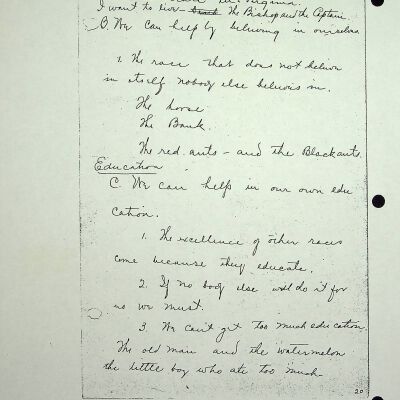 I want to live The Bishop and the Captain.
B. We can help by believing in ourselves
1. The race that does not believe
in itself nobody else believes in.
The horse
The Bank.
The red ants – and the Black ants.
Education
C. We can help in our own edu
cation.
1. The excellence of other races
come because they educate.
2. If no body else will do it for
us we must.
3 We can't get too much education.
The old man and the watermelon
the little boy who ate too much
20